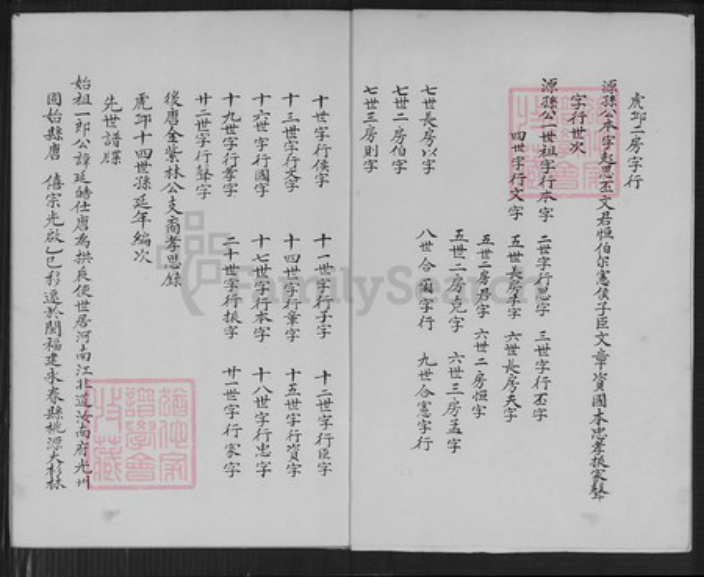 虎邱二房字行
源孫公本字起思丕文君恒伯 憲侯子臣文章資國本忠孝振家聲
字行世次
源孫公一世祖字行本字 二世字行思字 三世字行丕字
四世字行文字 五世長房子字 六世長房天字
五世二房君字 六世二房恒字
五世二房克字 六世三房孟字
七世長房以字 八世合 字行 九世合憲字行
七世二房伯字
七世三房則字
十世字行侯字 十一世字行子字 十二世字行臣字
十三世字行文字 十四世字行章字 十五世字行資字
十六世字行國字 十七世字行本字 十八世字行忠字
十九世字行孝字 二十世字行振字 廿一世字行家字
廿二世字行聲字
後唐金紫林公支裔孝思錄
虎邱十四世孫延年編次
先世譜牒
始祖一郎公諱廷皓仕唐為拱辰使世居河南江北道汝南府光州
固始縣唐 僖宗光啟乙巳移遷於閩福建永春縣桃源大杉林
FamilySearch